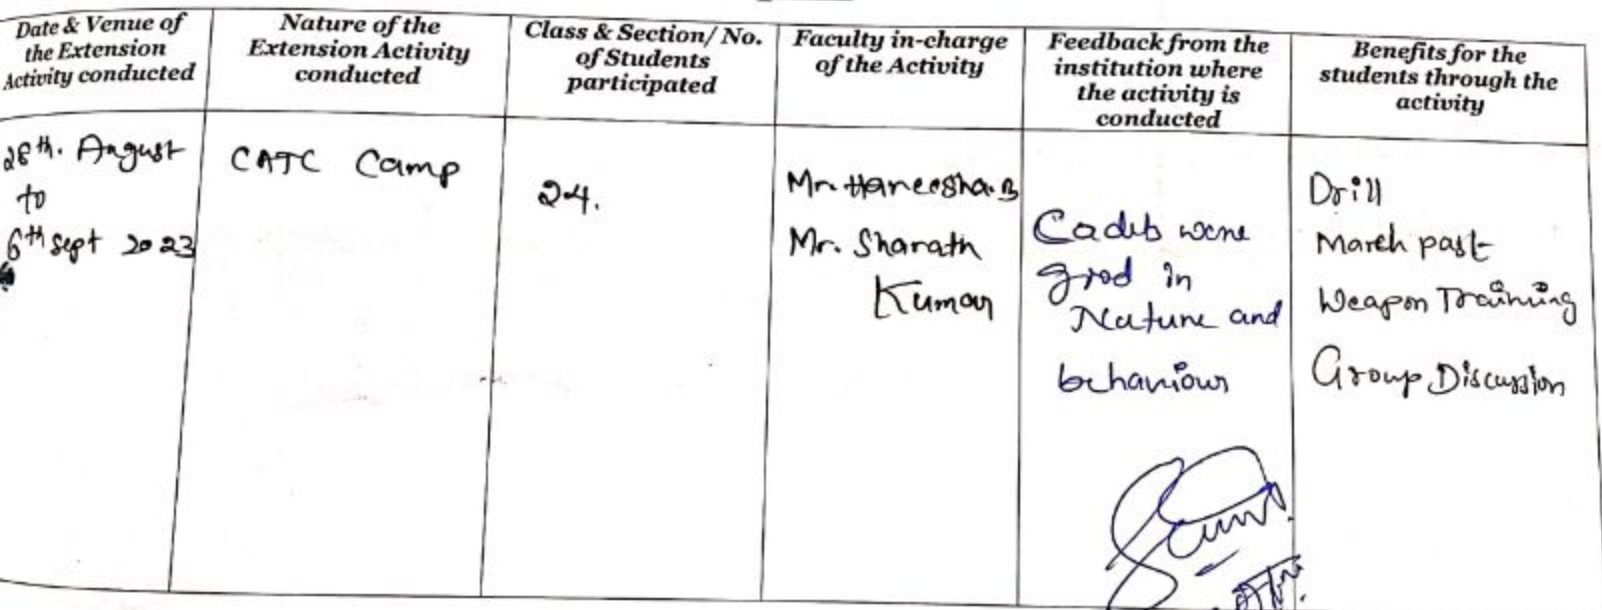 Date & Venue of
the Extension
Activity conducted
Nature of the
Extension Activity
conducted
Class & Section/ No.
of Students
participated
Faculty in-charge
of the Activity
Feedback from the
institution where
the activity is
conducted
Benefits for the
students through the
activity
28th. August
to
6th Sept 2023
CATC Camp
24.
Mr. Hareesha. B
Mr. Sharath
Kumar
Cadets were
good in
Nature and
behaviour
Drill
March past
Weapon Training
Group Discussion